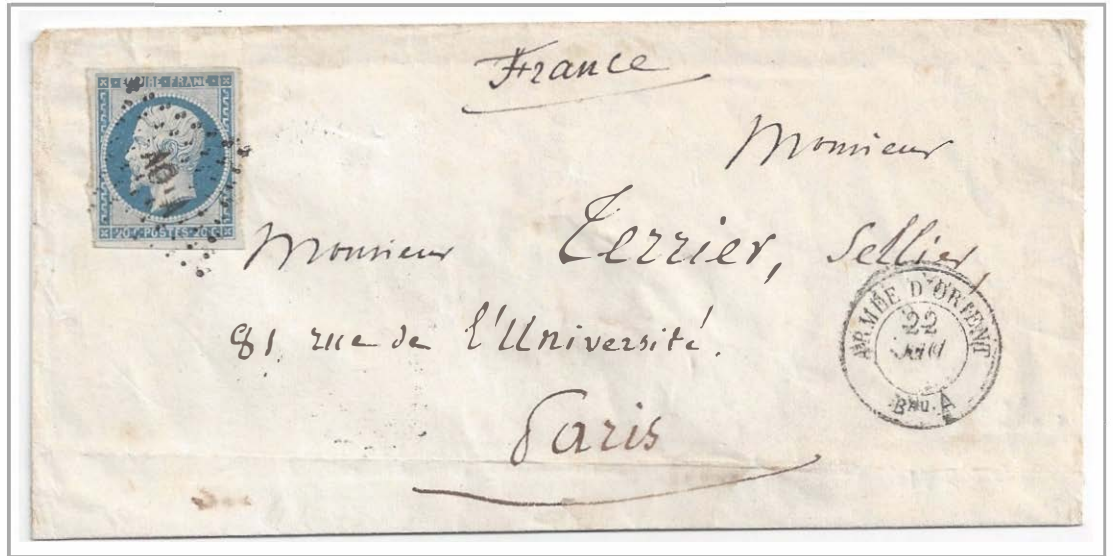 EMPIRE·FRANC·
20·c·POSTES·20·c·
France
Monsieur
Monsieur Terrier, Sellier,
81 rue de l'Université.
Paris
ARMÉE D'ORIENT
22
Bau. A